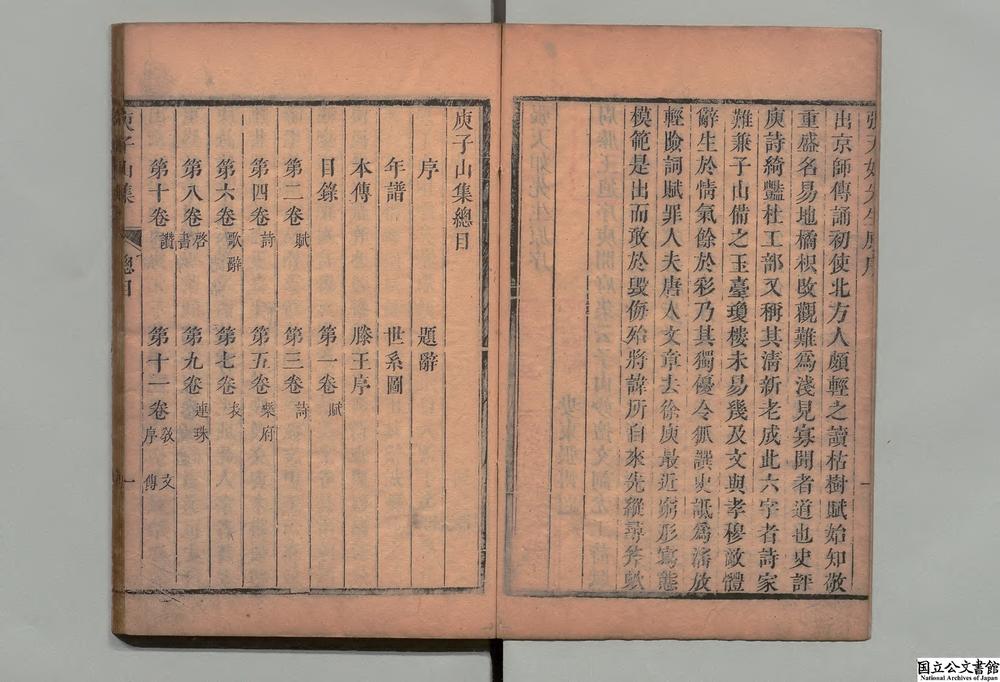 張天如先生原序
出京師傳誦初使北方人頗輕之讀枯樹賦始知敬
重盛名易地橘枳改觀難爲淺見寡聞者道也史評
庾詩綺豔杜工部又稱其淸新老成此六字者詩家
難兼子山備之玉臺瓊樓未易幾及文與孝穆敵體
辭生於情氣餘於彩乃其獨優令狐譔史詆爲淫放
輕險詞賦罪人夫唐人文章去徐庾最近窮形寫態
模範是出而敢於毀侮殆將諱所自來先縱尋斧歟
一
庾子山集總目
序 題辭
年譜 世系圖
本傳 滕王序
目錄 第一卷 賦
第二卷 賦 第三卷 詩
第四卷 詩 第五卷 樂府
第六卷 歌辭 第七卷 表
第八卷 啓 書 第九卷 連珠
第十卷 讚 第十一卷 敎 文 序 傳
庾子山集 總目 一
国立公文書館
National Archives of Japan